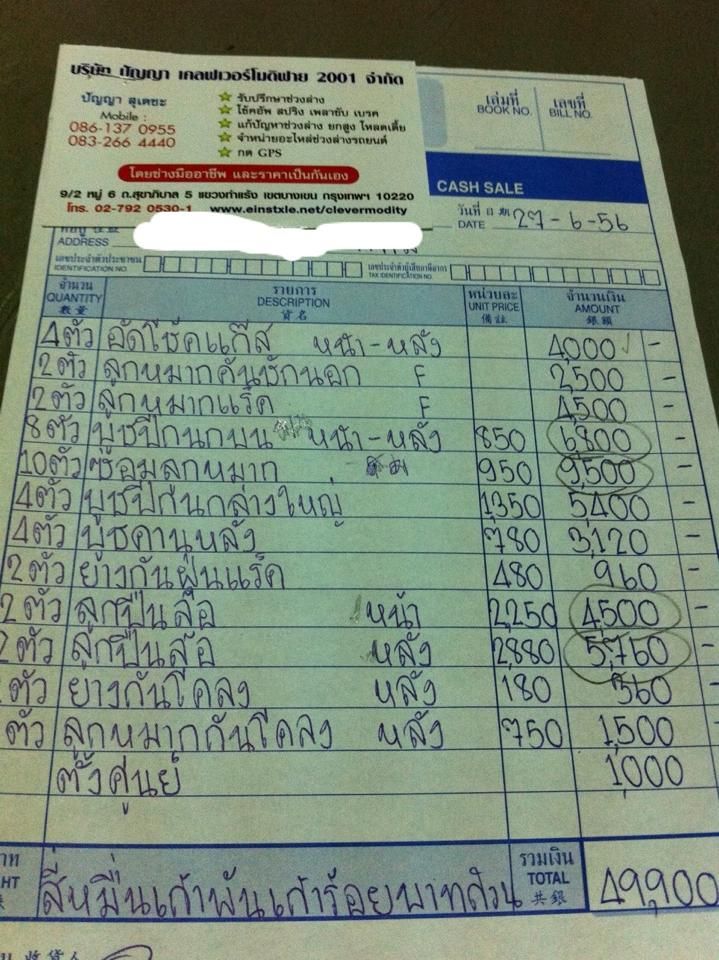 บริษัท ปัญญา เคลฟเวอร์โมดิฟาย 2001 จำกัด
ปัญญา สุเตชะ
Mobile :
086-137 0955
083-266 4440
รับปรึกษาช่วงล่าง
โช้คอัพ สปริง เพลาขับ เบรค
แก้ปัญหาช่วงล่าง ยกสูง โหลดเตี้ย
จำหน่ายอะไหล่ช่วงล่างรถยนต์
กต GPS
โดยช่างมืออาชีพ และราคาเป็นกันเอง
9/2 หมู่ 6 ถ.สุขาภิบาล 5 แขวงท่าแร้ง เขตบางเขน กรุงเทพฯ 10220
โทร. 02-792 0530-1 www.einstxle.net/clevermodity
เล่มที่ เลขที่
BOOK NO. BILL NO.
CASH SALE
วันที่ 27-6-56
DATE
ADDRESS
เลขประจำตัวประชาชน เลขประจำตัวผู้เสียภาษีอากร
IDENTIFICATION NO. TAX IDENTIFICATION NO.
จำนวน รายการ หน่วยละ จำนวนเงิน
QUANTITY DESCRIPTION UNIT PRICE AMOUNT
數量 貨名 備註 銀額
4ตัว อัดโช๊คแก๊ส หน้า-หลัง 4,000 -
2ตัว ลูกหมากคันชักนอก F 2,500 -
2ตัว ลูกหมากแร็ค F 4500 -
8ตัว บูชปีกนกบน หน้า-หลัง 850 6,800 -
10ตัว ซ่อมลูกหมาก 950 9,500 -
4ตัว บูชปีกนกล่างใหญ่ 1,350 5,400 -
4ตัว บูชคานหลัง 780 3,120 -
2ตัว ยางกันฝุ่นแร็ค 480 960 -
2ตัว ลูกปืนล้อ หน้า 2,250 4,500 -
2ตัว ลูกปืนล้อ หลัง 2,880 5,760 -
ตัว ยางกันโคลง หลัง 180 360 -
ตัว ลูกหมากกันโคลง หลัง 750 1,500 -
ตั้งศูนย์ 1,000 -
สี่หมื่นเก้าพันเก้าร้อยบาทถ้วน รวมเงิน 49,900
TOTAL
共銀
收貨人